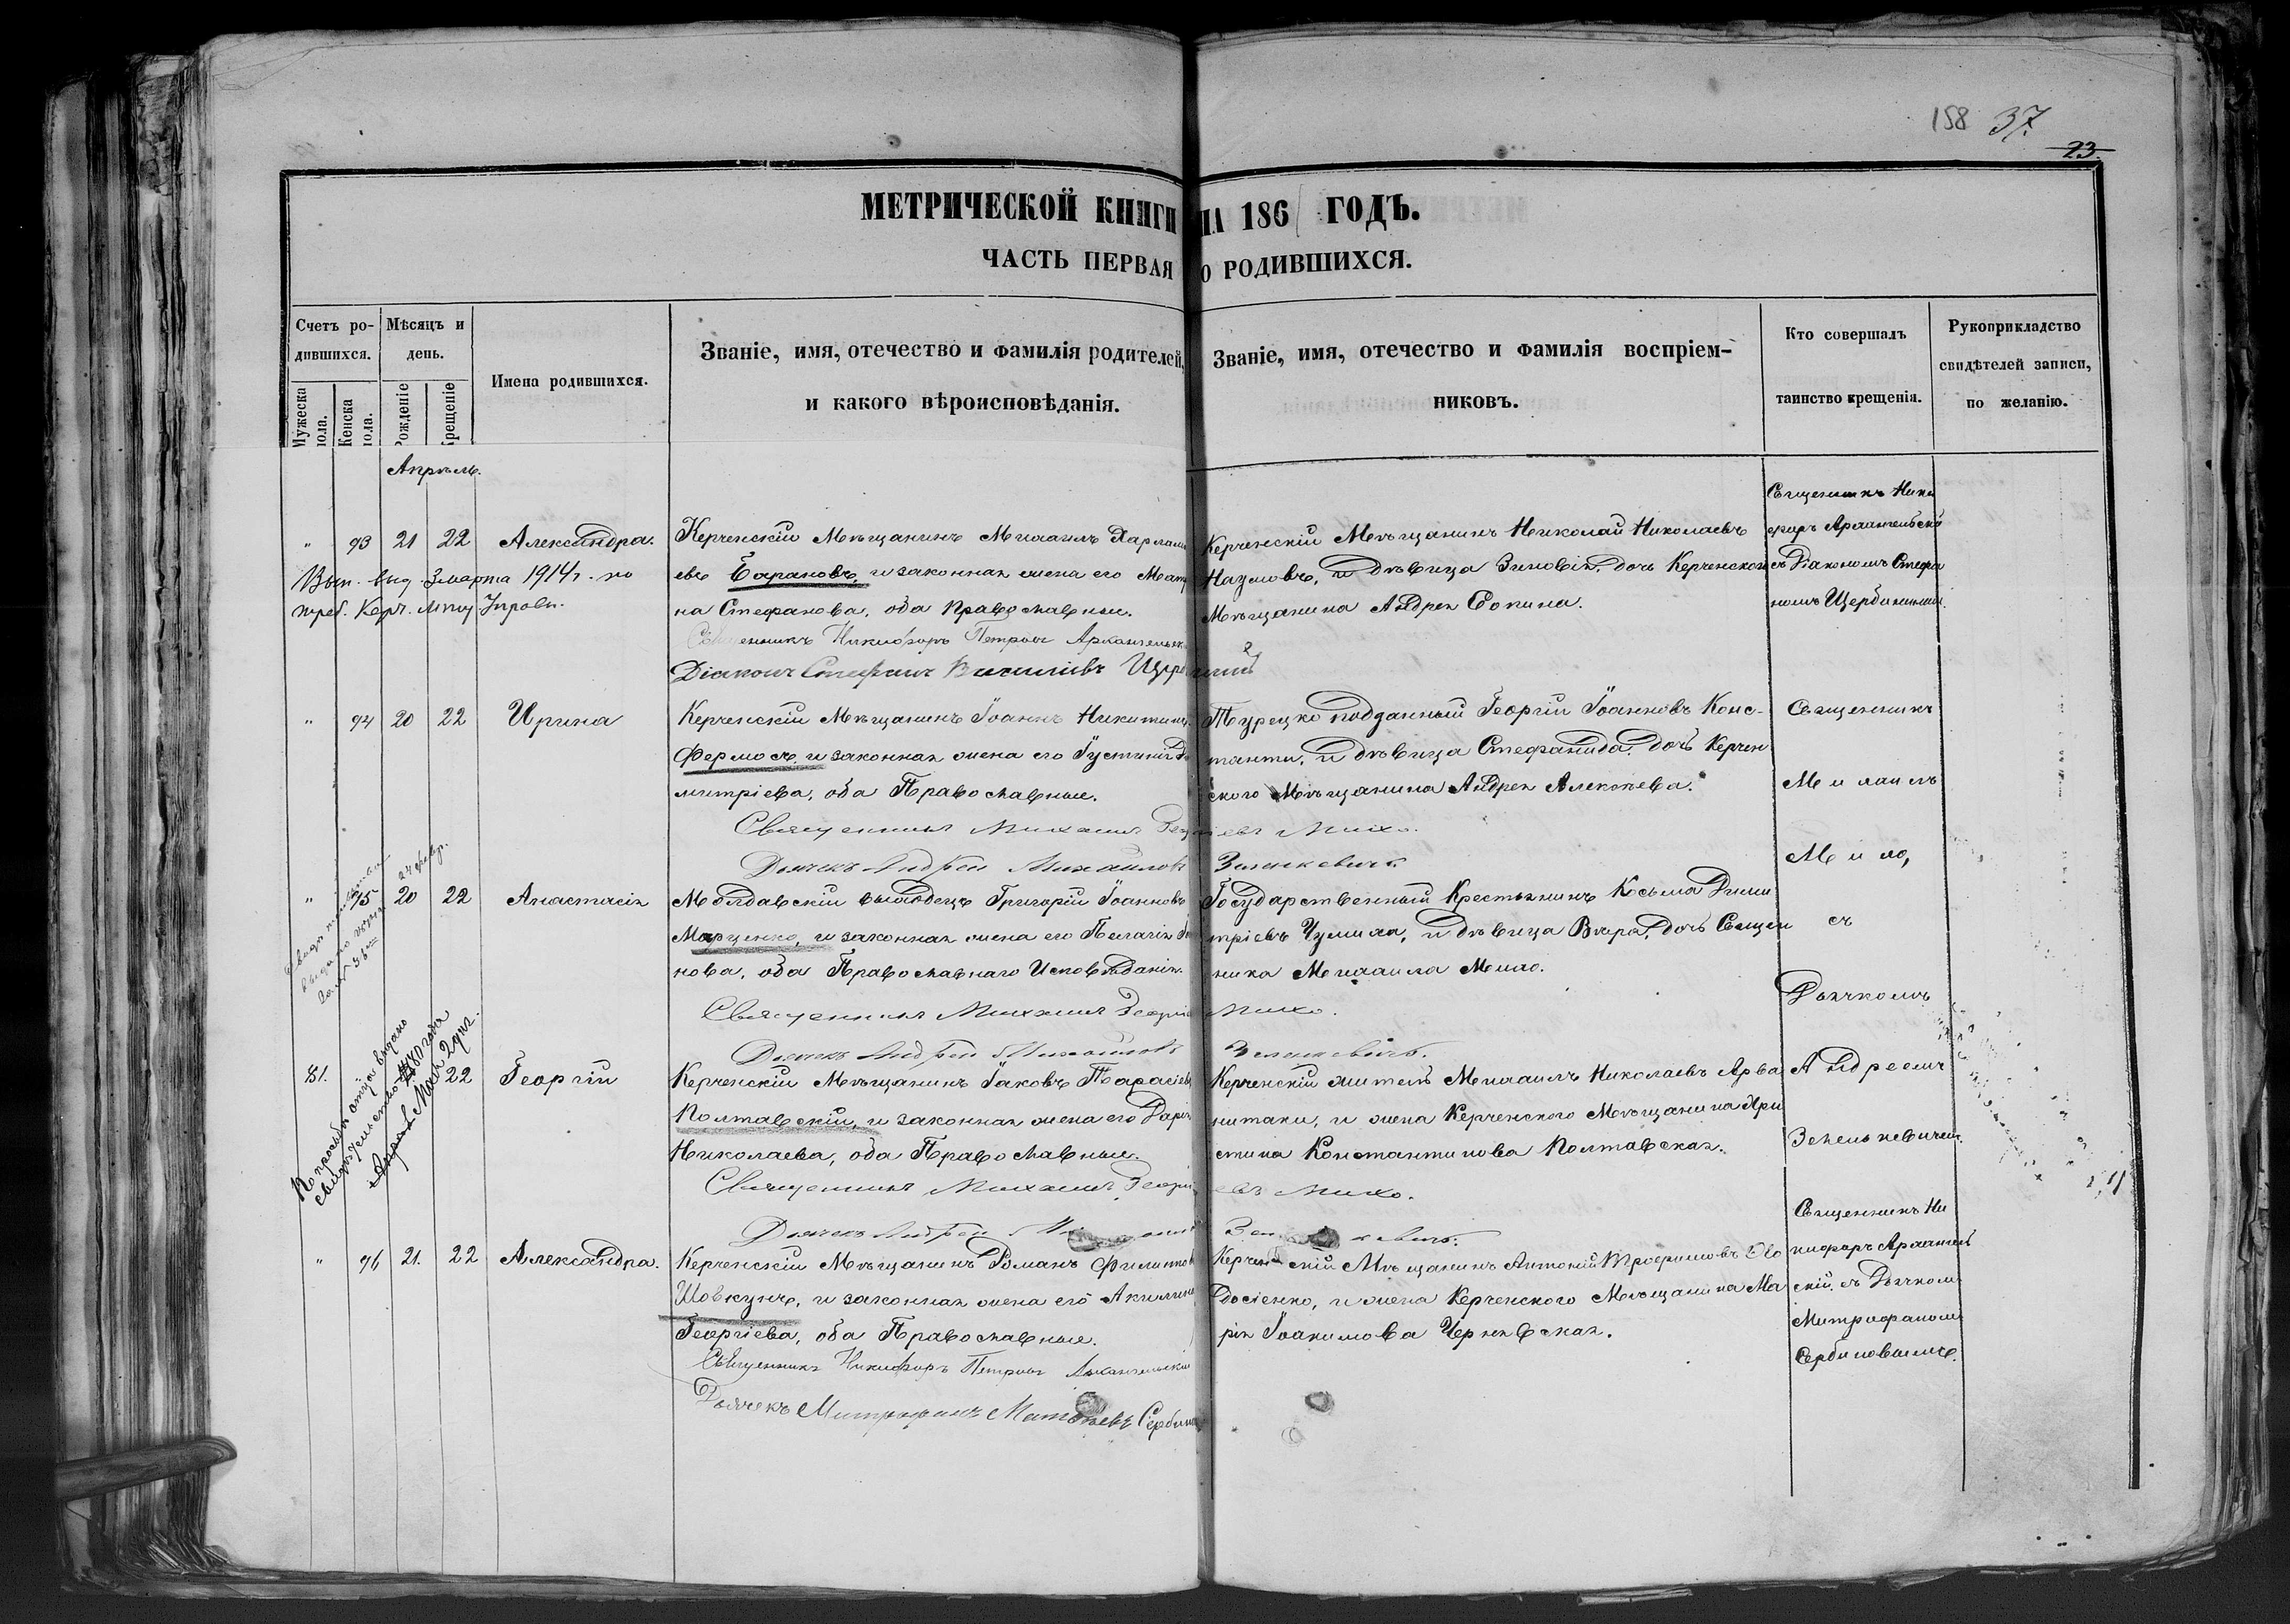 158 37.
23.
МЕТРИЧЕСКОЙ КНИГИ НА 1861 ГОДЪ.
ЧАСТЬ ПЕРВАЯ О РОДИВШИХСЯ.
Счетъ ро-
дившихся.
Мужеска
пола.
Женска
пола.
Мѣсяцъ и
день.
Рожденіе
Крещеніе
Имена родившихся.
Званіе, имя, отечество и фамилія родителей,
и какого вѣроисповѣданія.
Званіе, имя, отечество и фамилія воспріем-
никовъ.
Кто совершалъ
таинство крещенія.
Рукоприкладство
свидѣтелей записи,
по желанію.
Апрѣль.
" 93 21 22 Александра.
Вып. выд. 3 марта 1914 г. по
треб. Керч. Мѣщ. Управы.
Керченскій Мѣщанинъ Михаилъ Харлампі
евъ Барановъ, и законная жена его Матр
на Стефанова, оба православные.
Священникъ Никифоръ Петровъ Архангельск
Діаконъ Стефанъ Василіевъ Щерб
Керченскій Мѣщанинъ Николай Николаевъ
Наумовъ, и дѣвица Зиновія, дочь Керченского
Мѣщанина Андрея Сопина.
Священникъ Ники
форъ Архангельскій
съ Діакономъ Стефа
номъ Щербининымъ.
" 94 20 22 Ирина
Керченскій Мѣщанинъ Іоаннъ Никитинъ
Фермосъ, и законная жена его Іустинія Ди
митріева, оба Православные.
Священникъ Михаилъ Георгіевъ Михо.
Дьячекъ Андрей Михаиловъ Зеленкевичъ.
Турецко подданный Георгій Іоанновъ Конс-
танти, и дѣвица Стефанида, дочь Керчен
ского Мѣщанина Андрея Алексѣева.
Священникъ
Михаилъ
Михо,
съ
Дьячкомъ
Андреемъ
Зеленкевичем.
" 95 20 22 Анастасія
24 февр.
Молдавскій выходецъ Григорій Іоанновъ
Марценко, и законная жена его Пелагія
нова, оба Православнаго Исповѣданія.
Священникъ Михаилъ Георгіевъ Михо.
Дьячекъ Андрей Михаиловъ Зеленкевичъ.
Государственный Крестьянинъ Косьма Дими
тріевъ Чумиха, и дѣвица Вѣра, дочь Священ
ника Михаила Михо.
51. 22 Георгій
По просьбѣ отца выдано
свидѣтельство 1880 года
Мая 2 дня.
Керченскій Мѣщанинъ Іаковъ Тарасіевъ
Полтавскій, и законная жена его Дарія
Николаева, оба Православные.
Священникъ Михаилъ Георгіевъ Михо.
Дьячекъ Андрей Михаиловъ Зеленкевичъ.
Керченскій житель Михаилъ Николаевъ Арва
нитаки, и жена Керченского Мѣщанина Хри
стина Константинова Полтавская.
" 96 21. 22 Александра.
Керченскій Мѣщанинъ Романъ Филиппов
Шовкунъ, и законная жена его Акилина
Георгіева, оба Православные.
Священникъ Никифоръ Петровъ Архангельскій
Дьячекъ Митрофанъ Матвѣевъ Сербинов
Керченскій Мѣщанинъ Антоній Трофимовъ Ѳео
досіенко, и жена Керченского Мѣщанина Ма
рія Іоакимова Чернявская.
Священникъ Ни
кифоръ Архангель
скій, съ Дьячкомъ
Митрофаномъ
Сербиновымъ.